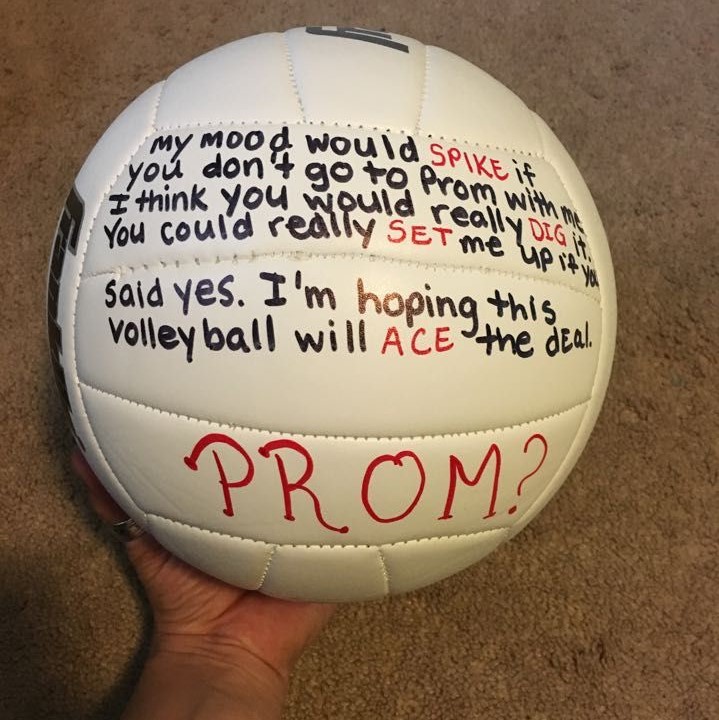 my mood would SPIKE if
you don't go to Prom with me
I think you would really DIG it.
You could really SET me up if you
said yes. I'm hoping this
volleyball will ACE the dEal.
PROM?